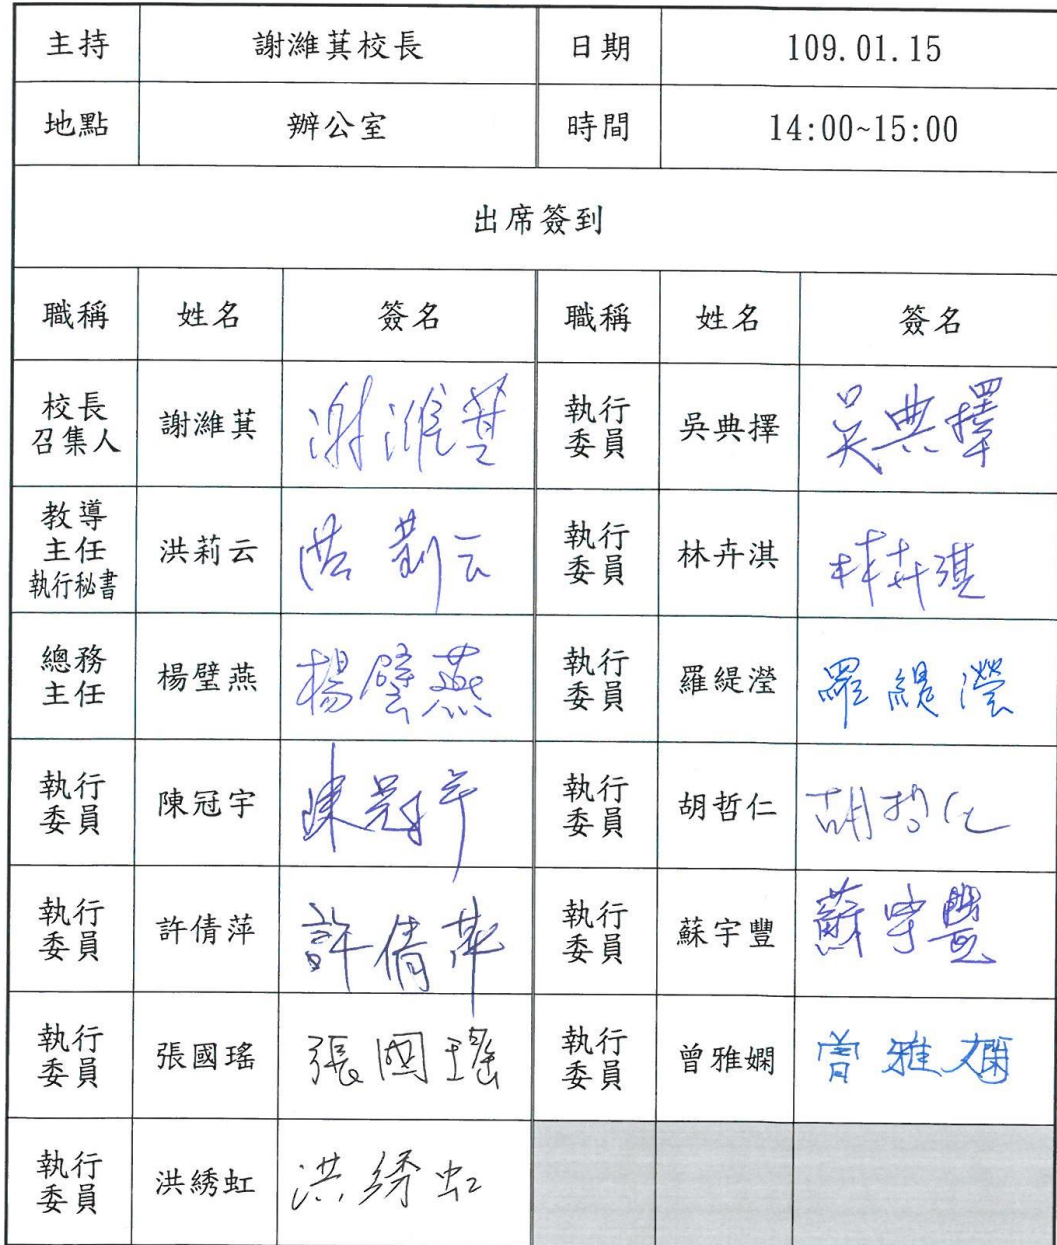 主持 謝濰萁校長 日期 109.01.15
地點 辦公室 時間 14:00~15:00
出席簽到
職稱 姓名 簽名 職稱 姓名 簽名
校長 召集人 謝濰萁 謝濰萁 執行委員 吳典擇 吳典擇
教導主任 執行秘書 洪莉云 洪莉云 執行委員 林卉淇 林卉淇
總務主任 楊璧燕 楊璧燕 執行委員 羅緹瀅 羅緹瀅
執行委員 陳冠宇 陳冠宇 執行委員 胡哲仁 胡哲仁
執行委員 許倩萍 許倩萍 執行委員 蘇宇豐 蘇宇豐
執行委員 張國瑤 張國瑤 執行委員 曾雅嫻 曾雅嫻
執行委員 洪綉虹 洪綉虹